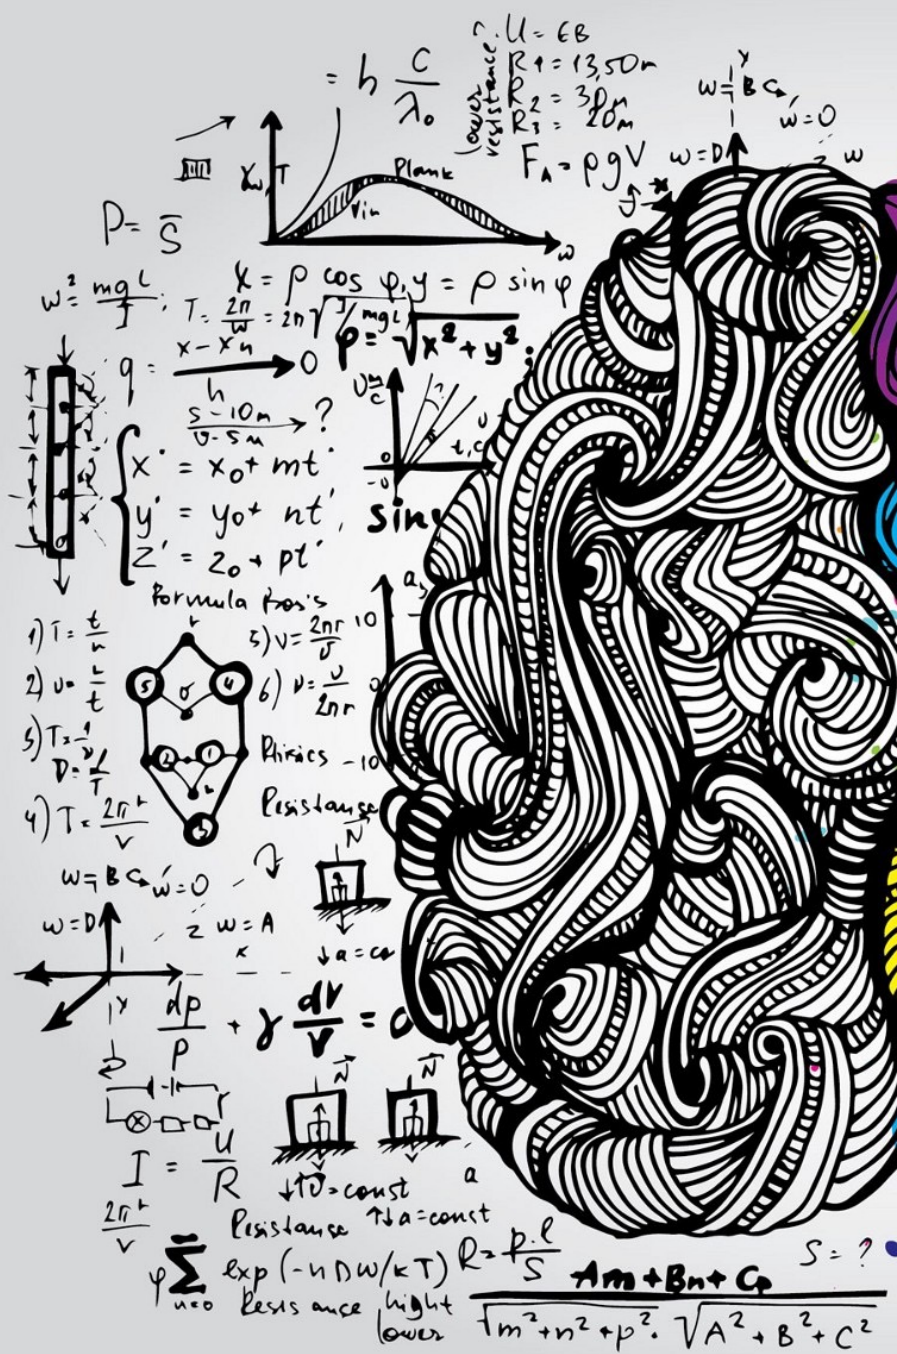 U = EB
R1 = 13,50m
R2 = 30m
R3 = 20m
lower resistance
= h C/λ₀
FA = ρgV
w = BC
w = 0
w = D
w
Plank
Vin
w
P = S̄
w² = mgL/J ; T = 2π/w = 2π√J/mgL
x = ρ cos φ, y = ρ sin φ
ρ = √x² + y² ;
q = x - xn/h → 0
s-10m/v-5m → ?
x = x₀ + mt
y = y₀ + nt
z = z₀ + pt
sin
a
Formula Bosis
1) T = t/n
2) υ =
3) T = 1/ν
ν = 1/T
4) T = 2πr/v
5) V = 2πr/υ
6) ν = υ/2πr
10
0
-10
5
4
2
1
3
Resistanse
N
w = BC
w = 0
w = D
z
w = A
x
y
↓a = co
dp/p + γ dV/V =
N
N
I = U/R
↓υ = const
a
2πr/v
Resistanse
↑↓a = const
φ Σ n=0 exp (-nDW/kT)
R = p·l/S
S = ?
Resis ance
hight
lower
Am + Bn + Cp/√m² + n² + p² · √A² + B² + C²